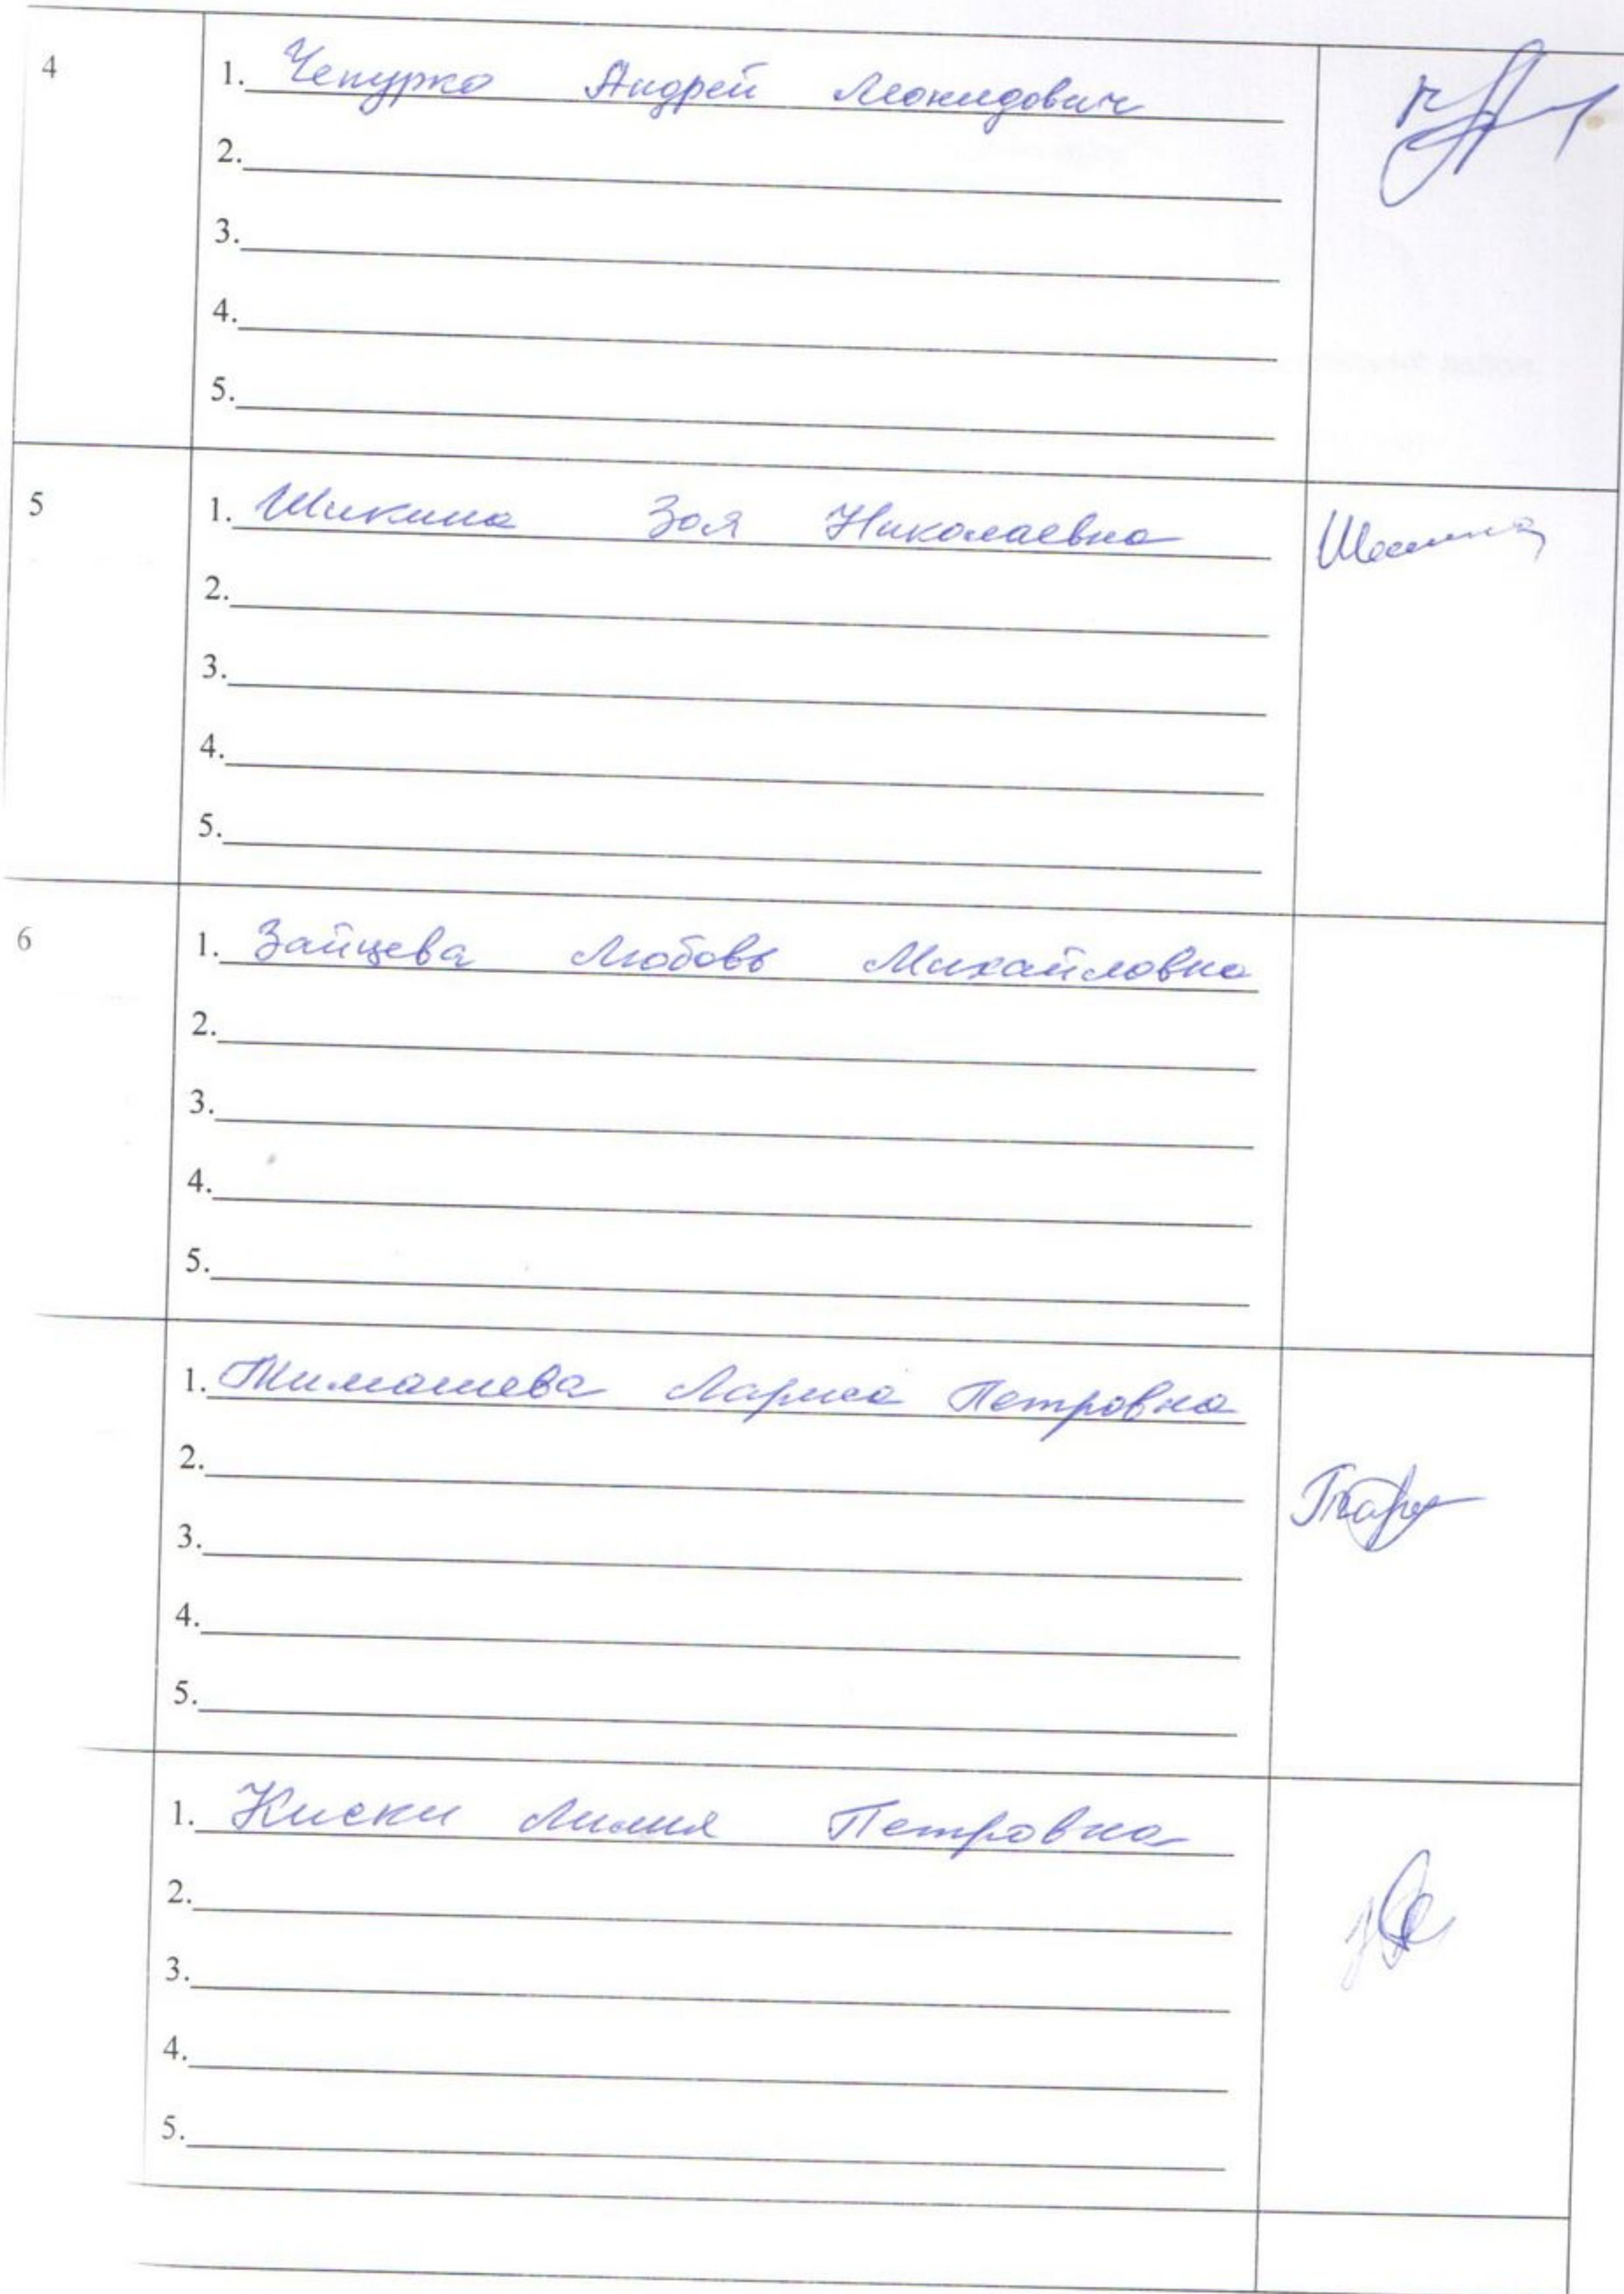 4
1. Чепурко Андрей Леонидович
2.
3.
4.
5.
5
1. Шикина Зоя Николаевна
2.
3.
4.
5.
6
1. Зайцева Любовь Михайловна
2.
3.
4.
5.
1. Тимашева Лариса Петровна
2.
3.
4.
5.
1. Киски Лилия Петровна
2.
3.
4.
5.